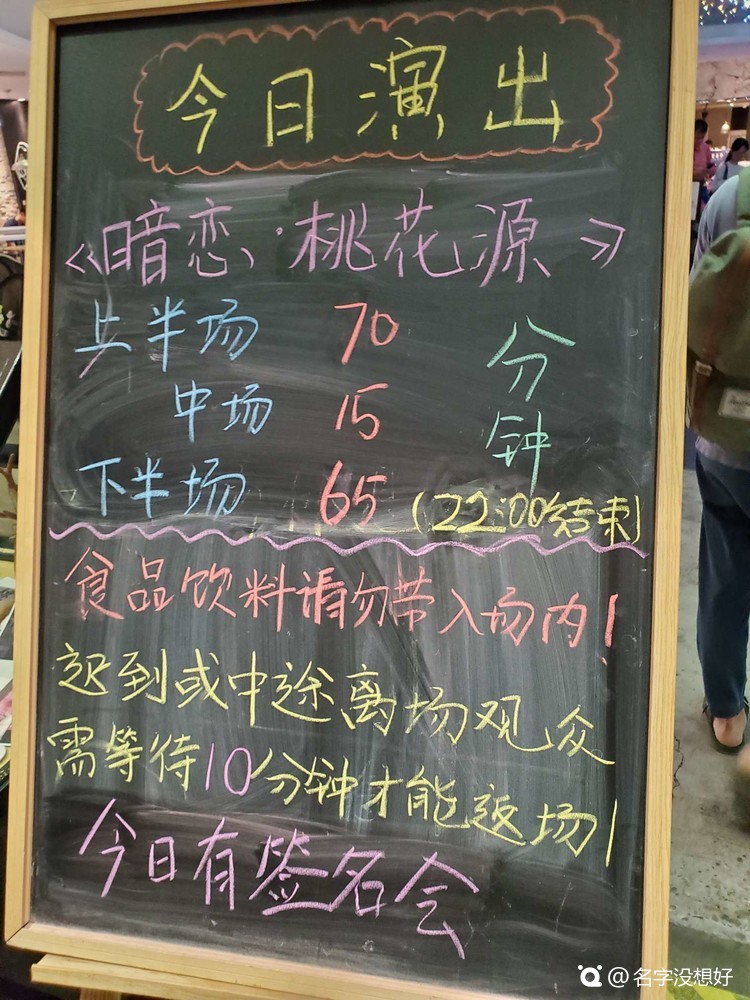 今日演出
《暗恋·桃花源》
上半场 70 分
中场 15 钟
下半场 65 (22:00结束)
食品饮料请勿带入场内!
迟到或中途离场观众
需等待10分钟才能返场!
今日有签名会
@名字没想好